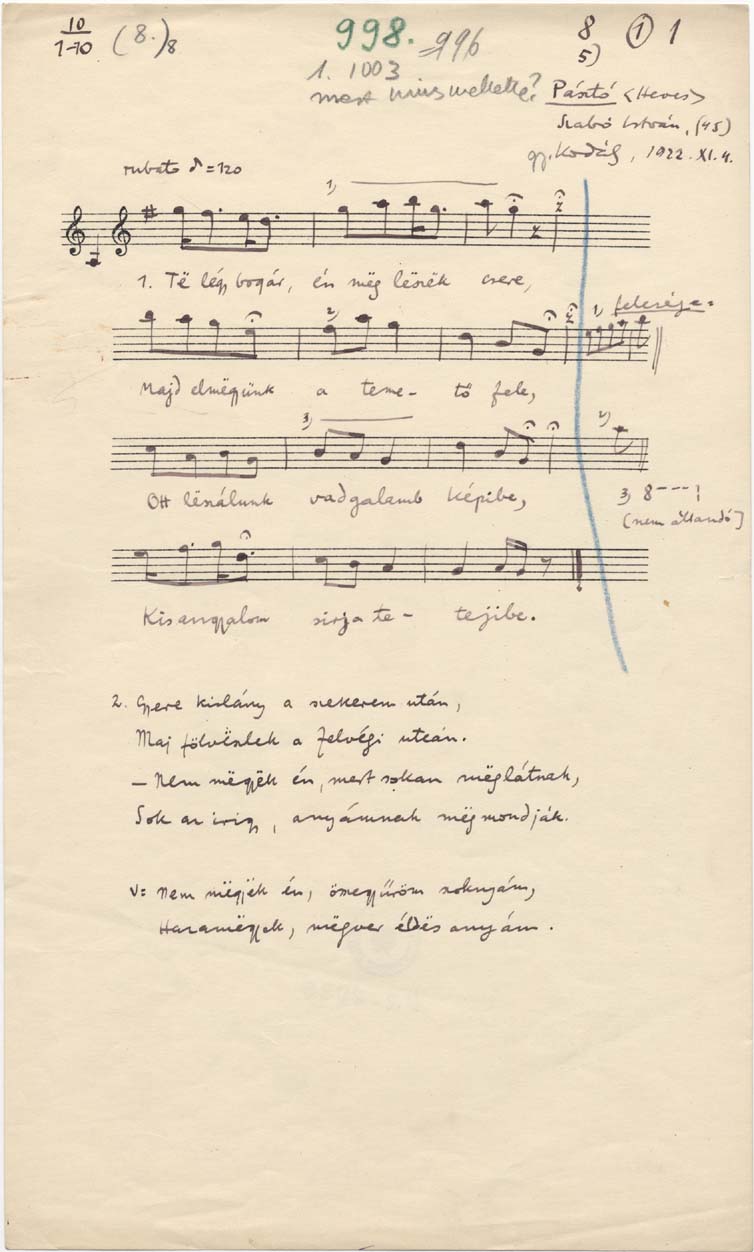 10
1-10 (8.)8 998. 996 8 ① 1
5)
1. 1003
mert nincs mellette? Pásztó <Heves>
Szabó István, (45)
gy. Kodály, 1922. XI. 4.
rubato ♪=120
1)
1. Të légy bogár, én mëg lëszëk csere,
2) 1) felesége:
Majd elmëgyünk a teme- tő fele,
3) 2)
Ott lëszálunk vadgalamb képibe,
3) 8---!
(nem állandó)
Kisangyalom sirja te- tejibe.
2. Gyere kislány a szekerem után,
Maj fölvëszlek a felvégi utcán.
– Nem mëgyëk én, mert sokan mëglátnak,
Sok az irigy, anyámnak mëgmondják.
V: Nem mëgyëk én, összegyűröm szoknyám,
Hazamëgyek, mëgver éldës anyám.